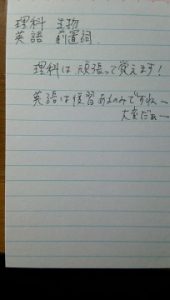 理科 生物
英語 前置詞
理科は頑張って覚えます!
英語は復習あるのみですね〜
大変だぁー